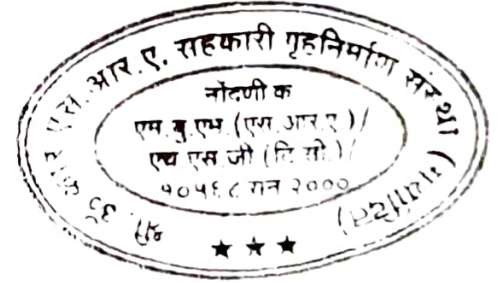 श्री. ॐ कार एस. आर. ए. सहकारी गृहनिर्माण संस्था (मर्यादित)
नोंदणी क
एम.बु.एम (एस.आर.ए.)/
एच एस जी (टि.सी.)/
१०५६८ सन २०००